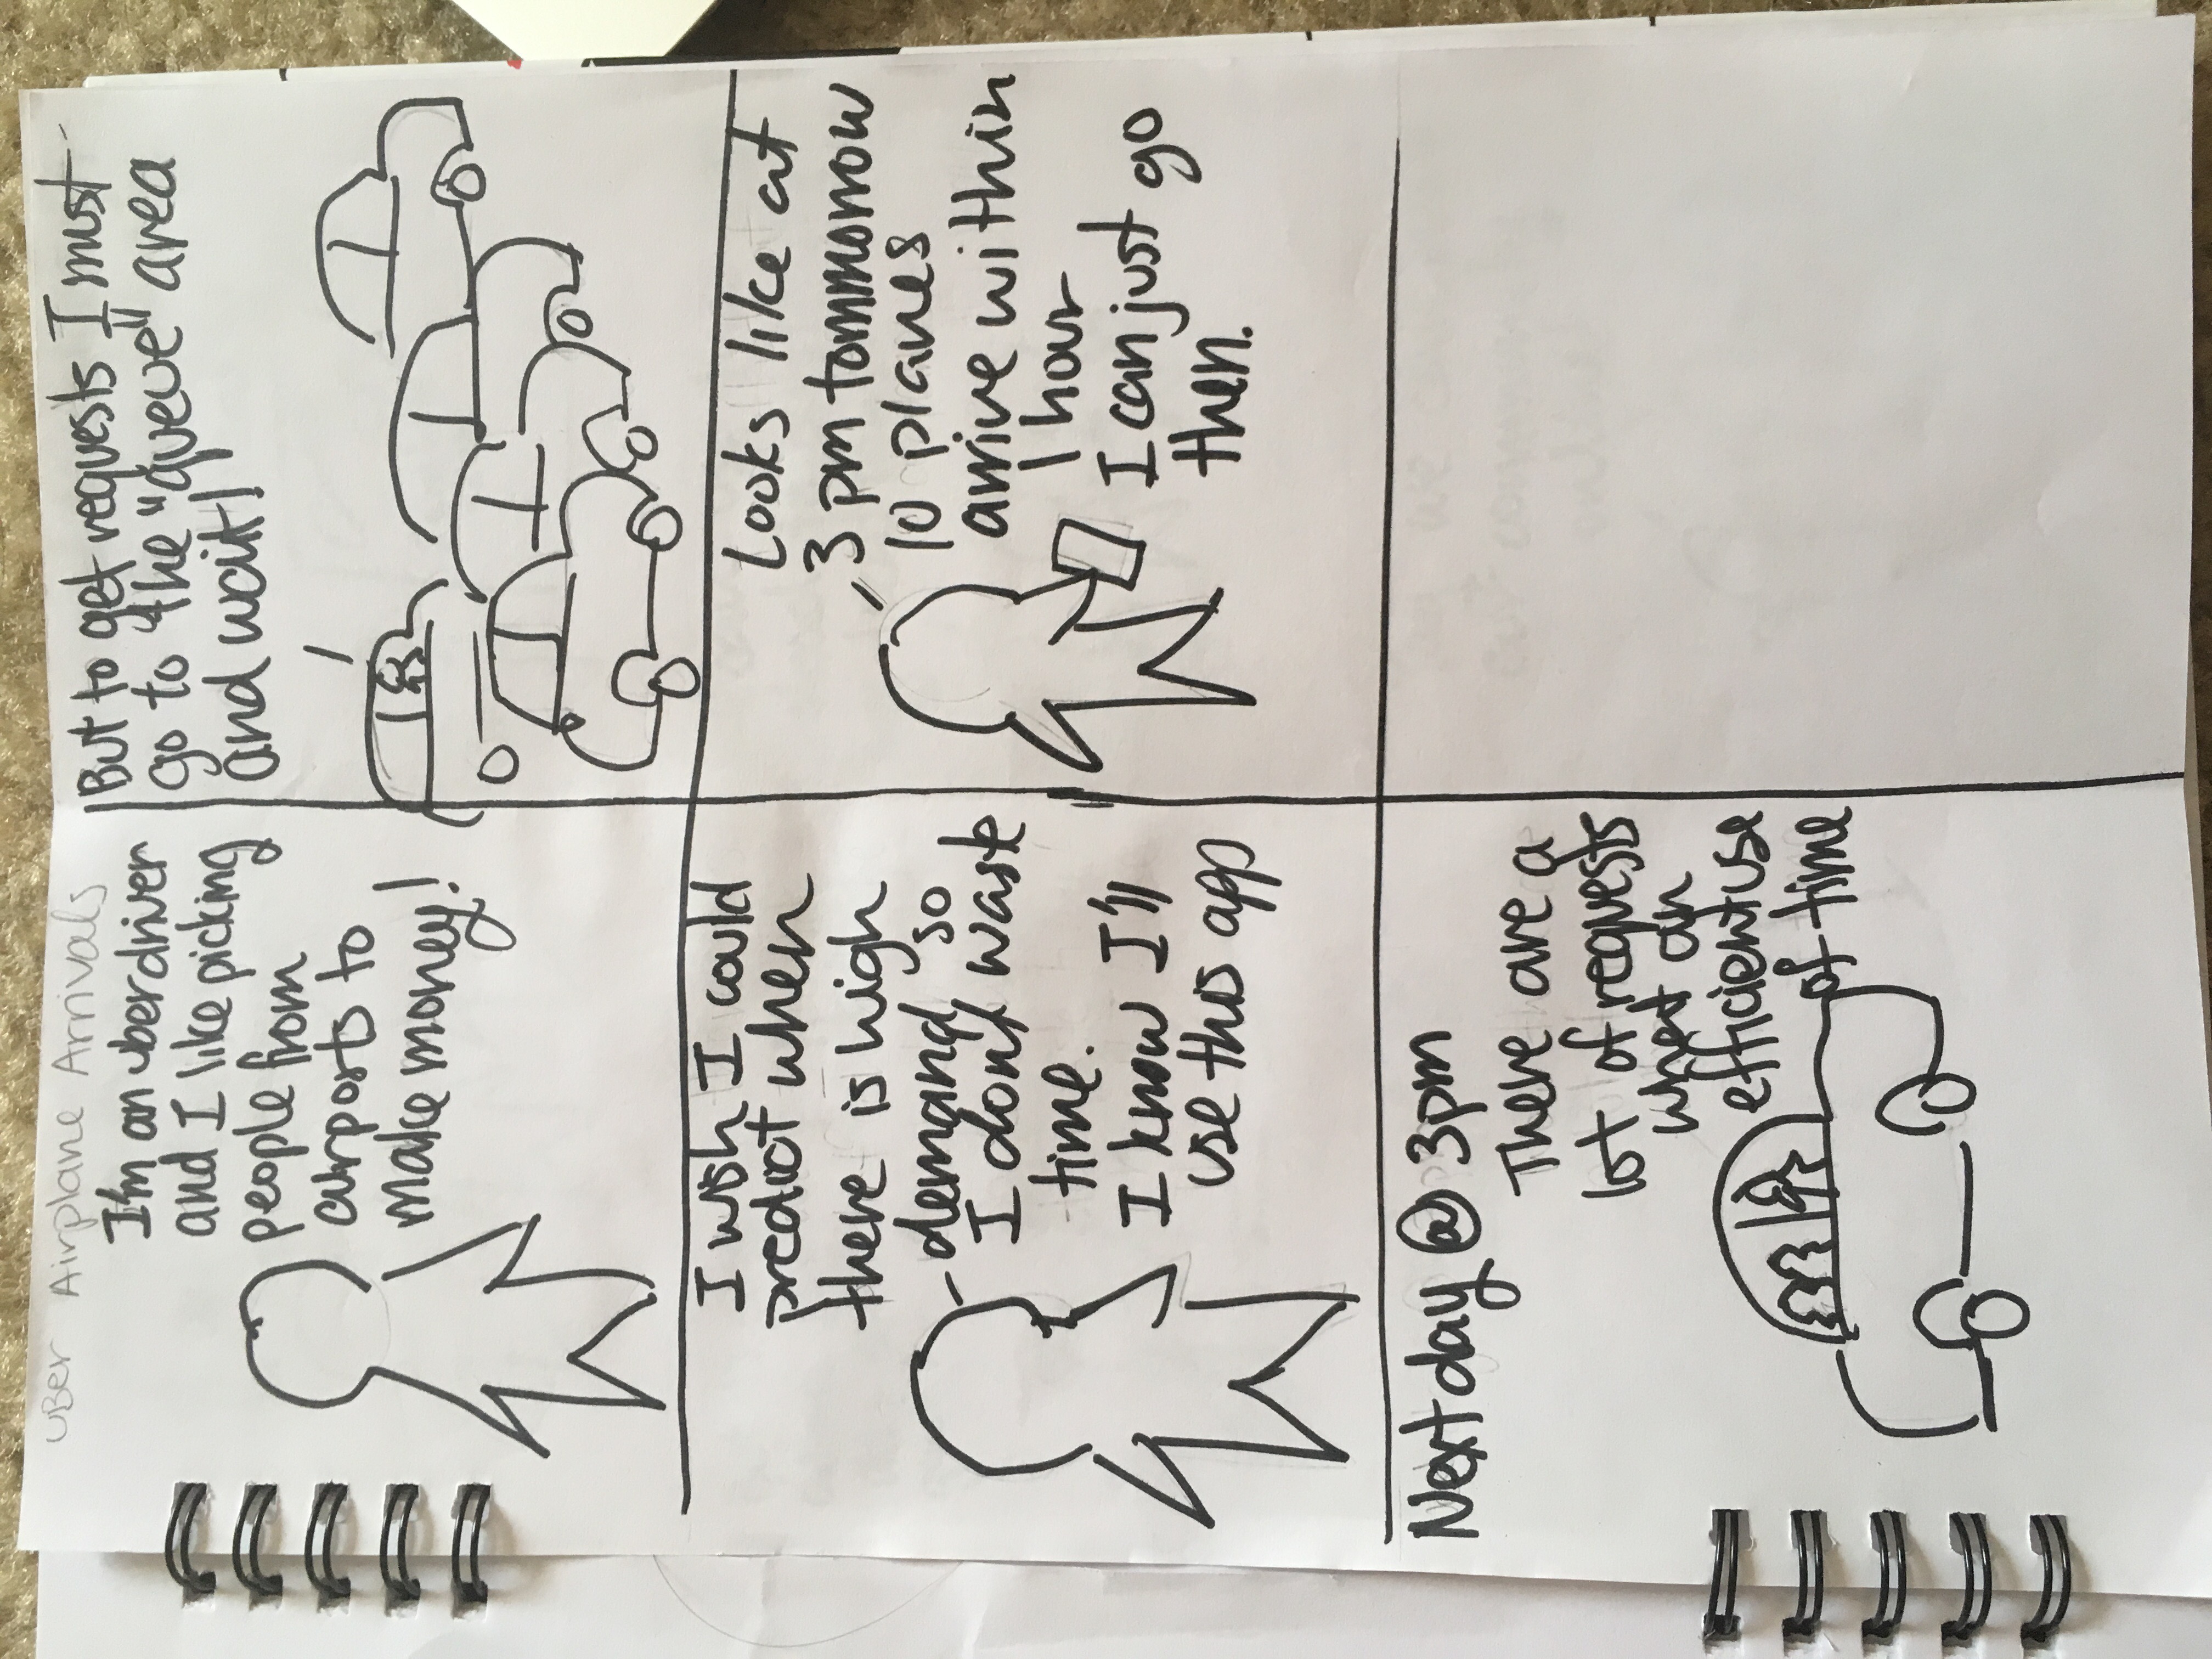 UBer Airplane Arrivals
I'm an uber driver
and I like picking
people from
airports to
make money!
But to get requests I must
go to the "queue" area
and wait!
I wish I could
predict when
there is high
demand so
I dont waste
time.
I know I'll
use this app
Looks like at
3 pm tommorrow
10 planes
arrive within
1 hour
I can just go
then.
Next day @ 3pm
There are a
lot of requests
what an
efficient use
of time